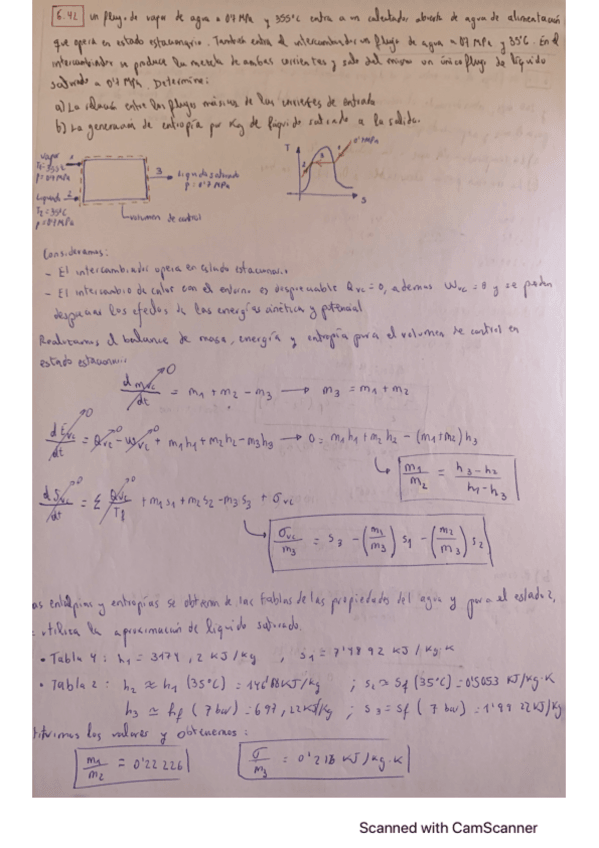 6.42 Un flujo de vapor de agua a 0'7 MPa y 355°C entra a un calentador abierto de agua de alimentación
que opera en estado estacionario. También entra al intercambiador un flujo de agua a 0'7 MPa y 35°C. En el
intercambiador se produce la mezcla de ambas corrientes y sale del mismo un único flujo de líquido
saturado a 0'7 MPa. Determine:
a) La relación entre los flujos másicos de las corrientes de entrada
b) La generación de entropía por Kg de líquido saturado a la salida.
Vapor 1
T1=355°C
p=0'7 MPa
Liquido 2
T2=35°C
p=0'7 MPa
3 Liquido saturado
p=0'7 MPa
volumen de control
T
0'7 MPa
2 3 1
s
Consideramos:
- El intercambiador opera en estado estacionario
- El intercambio de calor con el entorno es despreciable Qvc=0, además Wvc=0 y se pueden
despreciar los efectos de las energías cinética y potencial
Realizamos el balance de masa, energía y entropía para el volumen de control en
estado estacionario
d mvc/dt →0 = m1 + m2 - m3 → m3 = m1 + m2
dEvc/dt →0 = Qvc →0 - Wvc →0 + m1h1 + m2h2 - m3h3 → 0 = m1h1 + m2h2 - (m1+m2)h3
m1/m2 = (h3-h2)/(h1-h3)
dSvc/dt →0 = Σ Qvc/Tf →0 + m1s1 + m2s2 - m3s3 + σvc
σvc/m3 = s3 - (m1/m3) s1 - (m2/m3) s2
as entalpias y entropías se obtienen de las tablas de las propiedades del agua y para el estado 2,
utiliza la aproximación de liquido saturado.
• Tabla 4: h1 = 3174,2 KJ/kg , s1 = 7'4892 KJ/kg·K
• Tabla 2: h2 ≈ h1 (35°C) = 146'68 KJ/kg ; s2 ≈ sf (35°C) = 0'5053 KJ/kg·K
h3 ≃ hf (7 bar) = 697,22 KJ/kg ; s3 = sf (7 bar) = 1'9922 KJ/kg·K
tituimos los valores y obtenemos:
m1/m2 = 0'22226
σ/m3 = 0'218 KJ/kg·K
Scanned with CamScanner